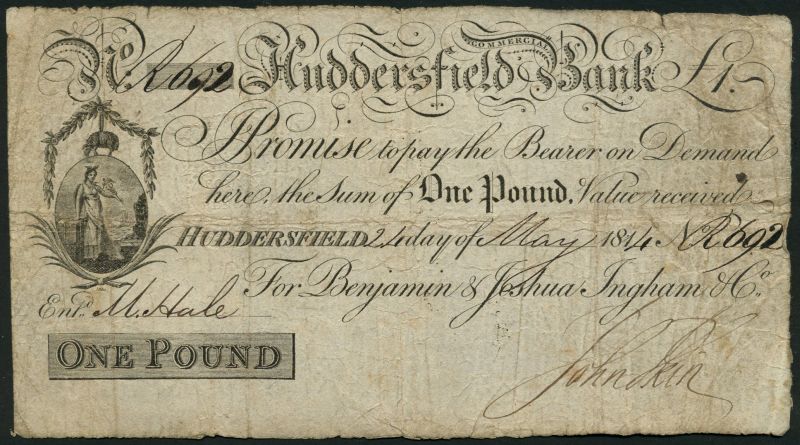 No. R692 Huddersfield COMMERCIAL Bank £1.–
I Promise to pay the Bearer on Demand
here, the Sum of One Pound. Value received
HUDDERSFIELD 24 day of May 1814 No R692
For Benjamin & Joshua Ingham, & Co.
Entd. M. Hale
ONE POUND
John